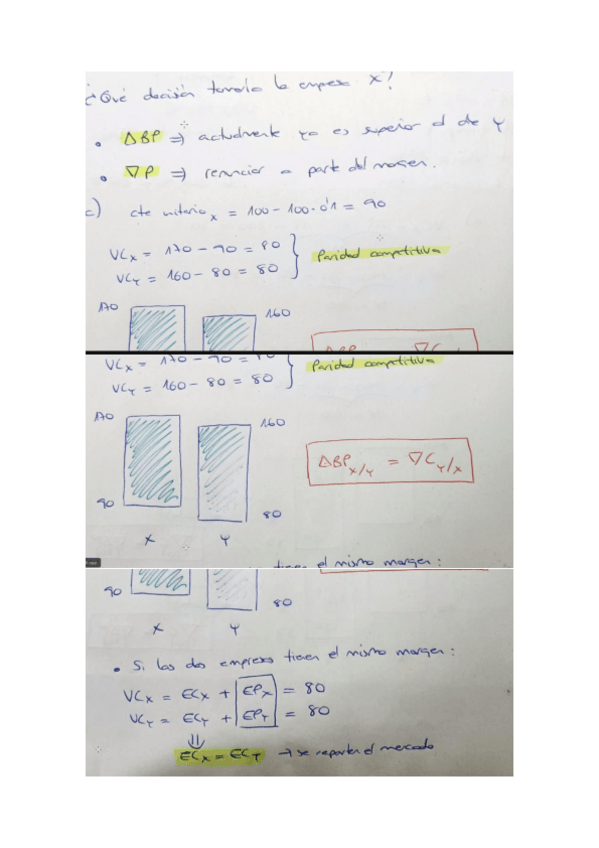 ¿Qué decisión tomaría la empresa X?
• ΔBP ⇒ actualmente ya es superior al de Y
• ∇P ⇒ renunciar a parte del margen.
c) cte unitario X = 100 - 100·0'1 = 90
VCX = 170 - 90 = 80
VCY = 160 - 80 = 80
Paridad competitiva
170
160
VCX = 170 - 90 = 80
VCY = 160 - 80 = 80
Paridad competitiva
170
160
ΔBP X/Y = ∇C Y/X
90
80
X Y
tienen el mismo margen:
90
80
X Y
• Si las dos empresas tienen el mismo margen:
VCX = ECX + EPX = 80
VCY = ECY + EPY = 80
⇓
ECX = ECY → se reparten el mercado